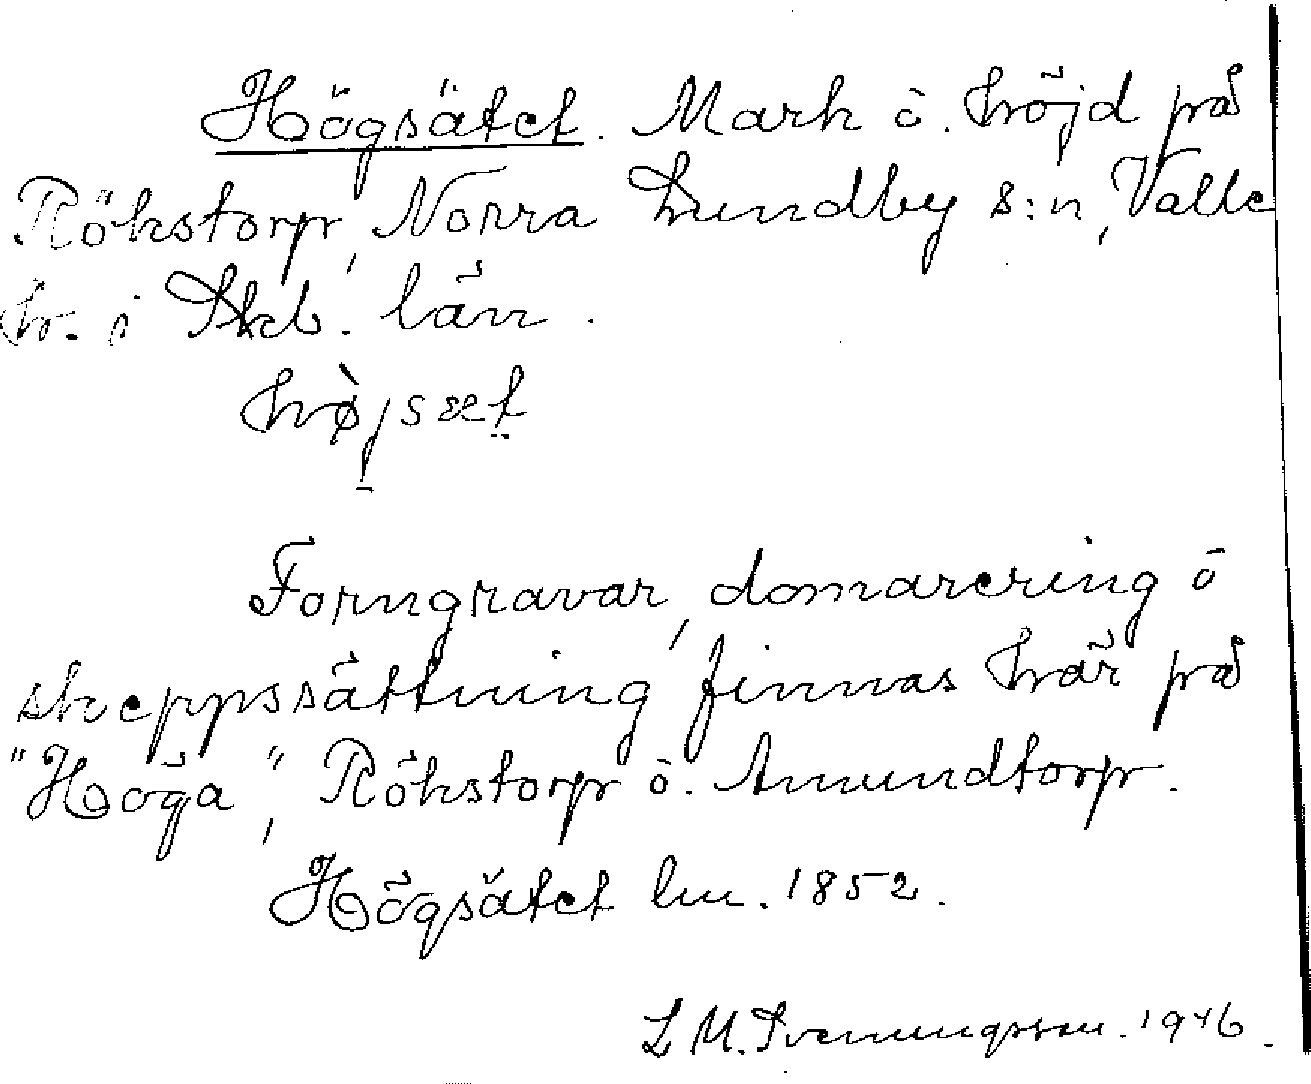 Högsätet. Mark o. höjd på
Rökstorp, Norra Lundby s:n, Valle
hr. i Skb. län.
hø̀jsæt
Forngravar, domarering o
skeppssättning finnas här på
"Höga", Rökstorp o. Amundtorp.
Högsätet lm. 1852.
L M. Svenungsson. 1946.